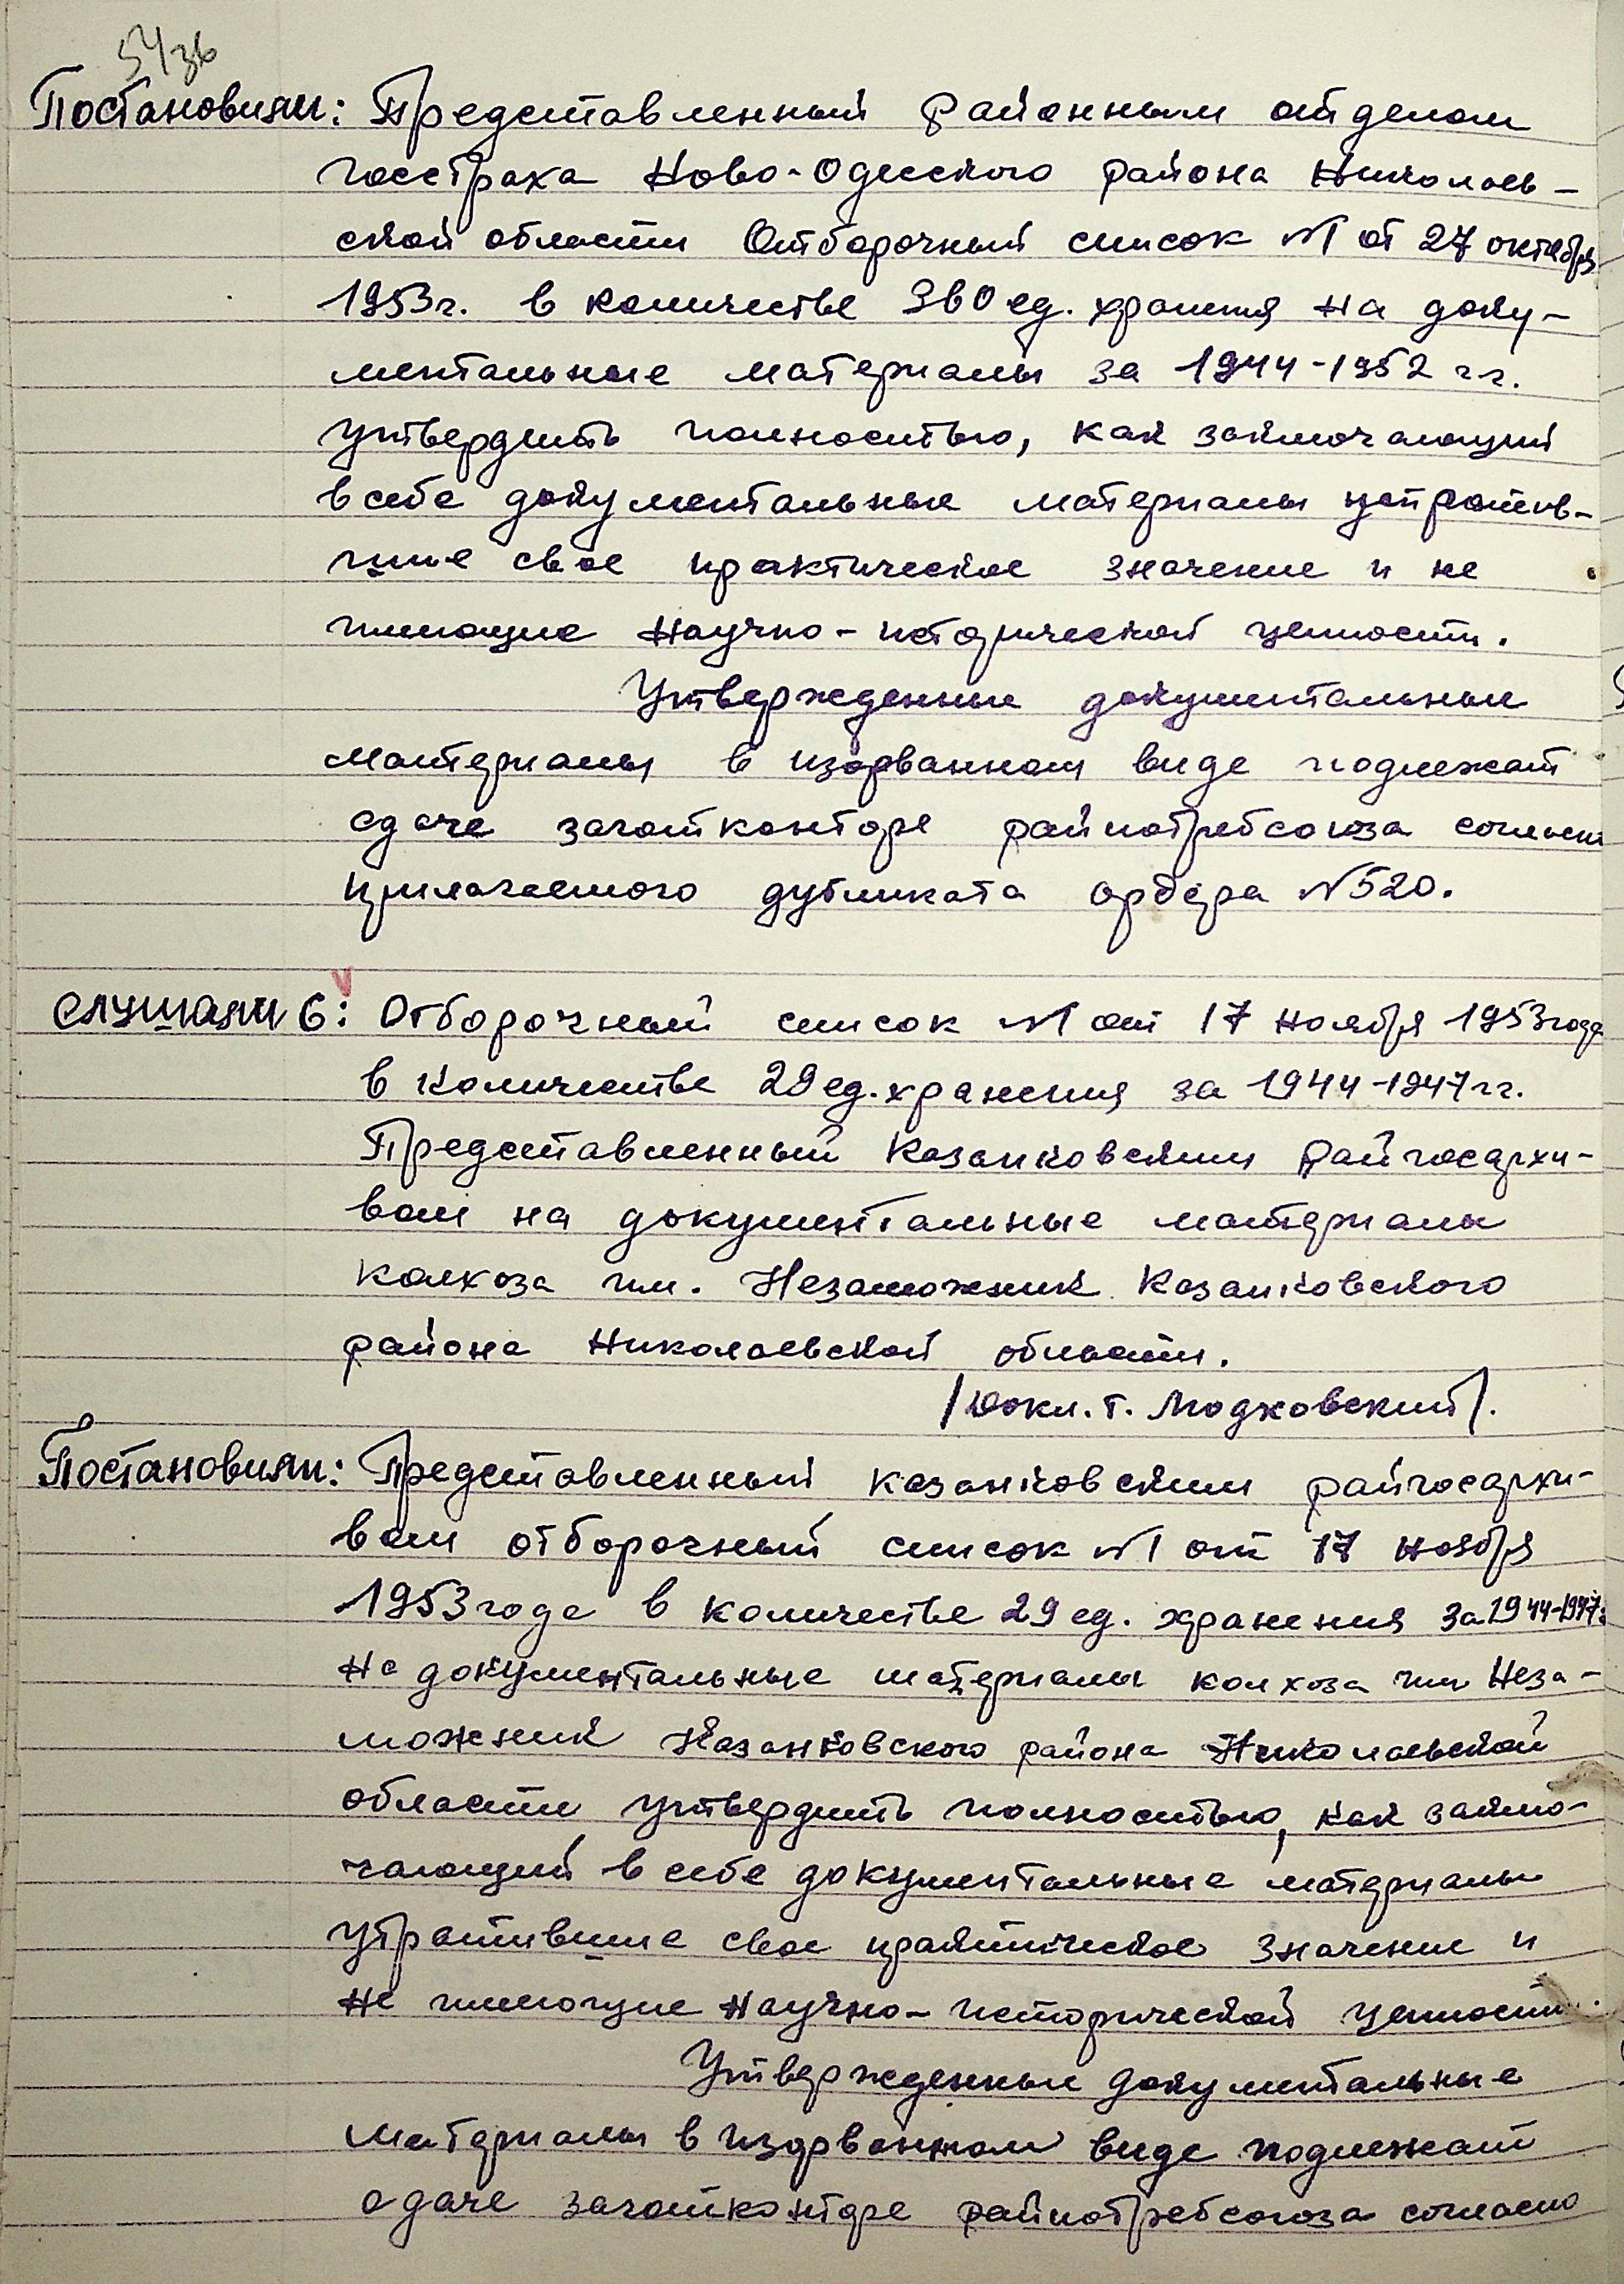 54/36
Постановили: Представленный районным отделом
госстраха Ново-Одесского района Николаев-
ской области Отборочный список №1 от 27 октября
1953г. в количестве 360 ед. хранения на доку-
ментальные материалы за 1944-1952 гг.
утвердить полностью, как заключающий
в себе документальные материалы утратив-
шие свое практическое значение и не
имеющие научно-исторической ценности.
Утвержденные документальные
материалы в изорванном виде подлежат
сдаче заготконторе райпотребсоюза согласно
прилагаемого дубликата ордера №520.
Слушали 6: Отборочный список №1 от 17 ноября 1953 года
в количестве 29 ед. хранения за 1944-1947 гг.
Представленный Казанковским райгосархи-
вом на документальные материалы
колхоза им. Незаможник Казанковского
района Николаевской области.
/Докл. т. Моджовский/.
Постановили: Представленный Казанковским райгосархи-
вом отборочный список №1 от 17 ноября
1953 года в количестве 29 ед. хранения за 1944-1947г
на документальные материалы колхоза им Неза-
можник Казанковского района Николаевской
области утвердить полностью, как заклю-
чающий в себе документальные материалы
утратившие свое практическое значение и
не имеющие научно-исторической ценности.
Утвержденные документальные
материалы в изорванном виде подлежат
сдаче заготконторе райпотребсоюза согласно